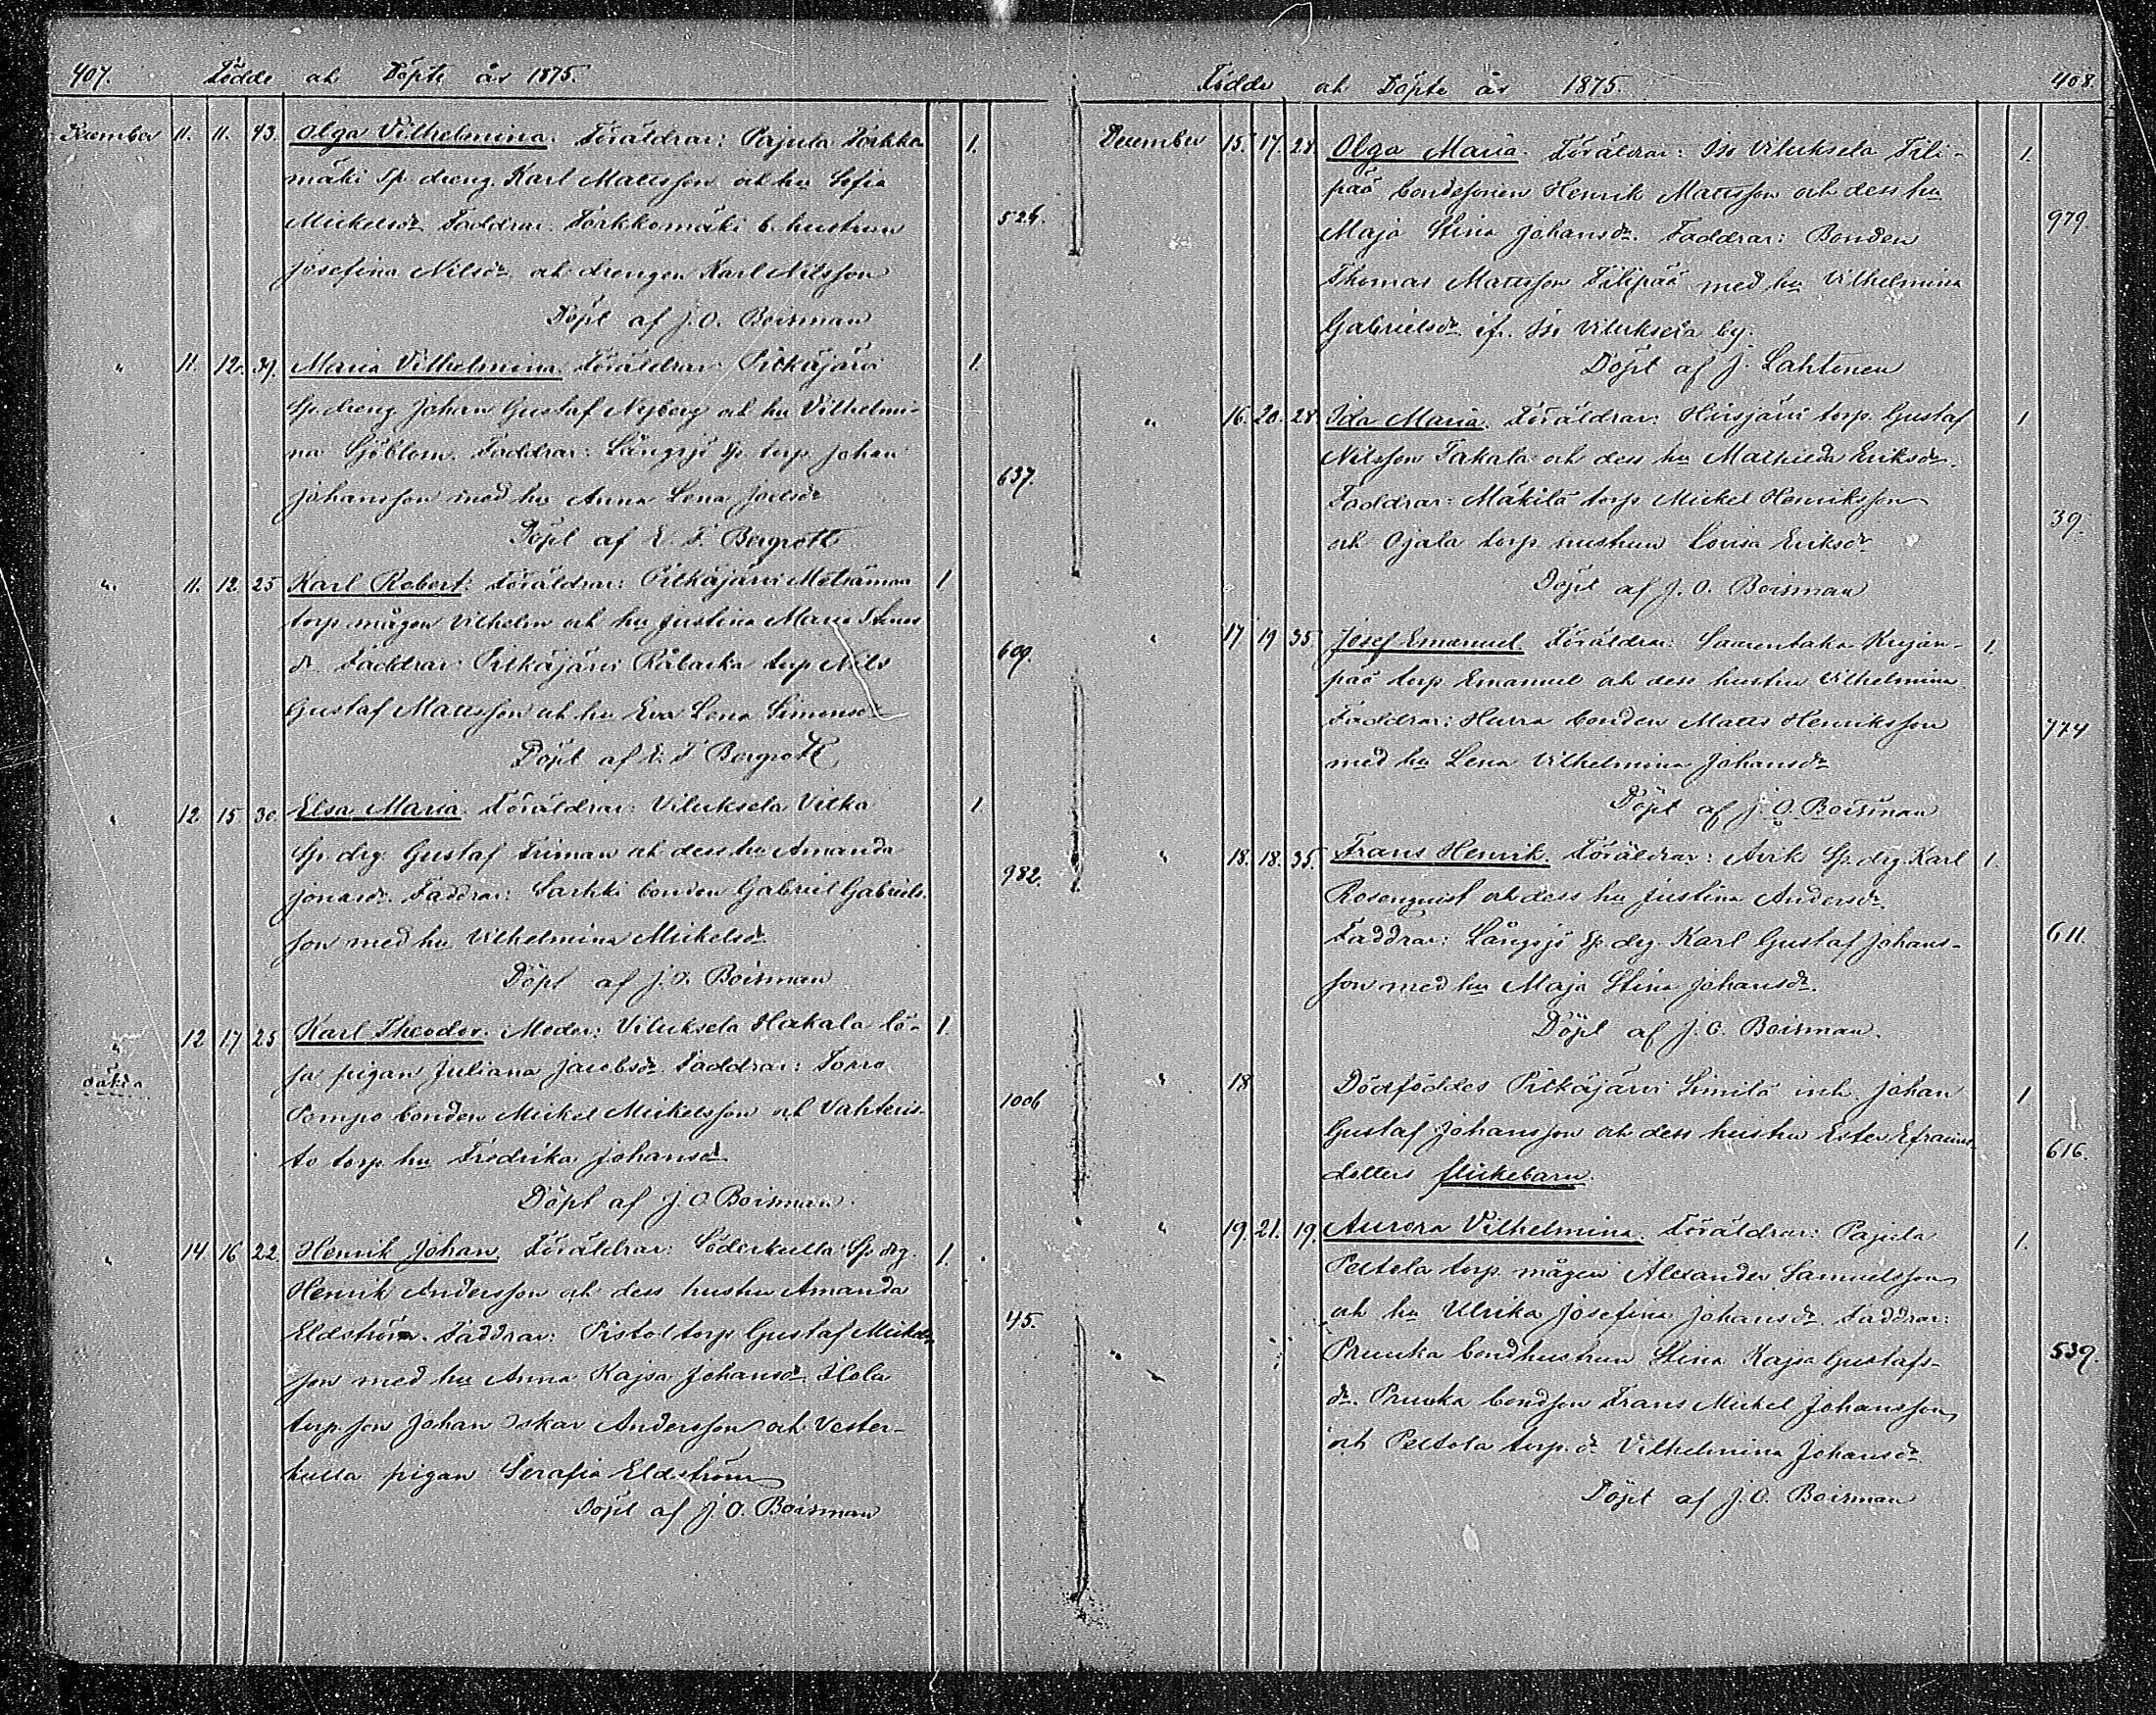 407. Födde och Döpte år 1875.
December 11. 11. 43. Olga Vilhelmina. Föräldrar: Pajula Torkko- 1.
mäki Sp. dreng Karl Mattsson och hu Sofia
Mickelsdr Faddrar: Torkkomäki b. hustrun 526.
Josefina Nilsdr och drengen Karl Nilsson
Döpt af J. O. Boisman
" 11. 12. 39. Maria Vilhelmina. Föräldrar: Pitkäjärvi 1.
Sp. dreng Johan Gustaf Nyberg och hu Vilhelmi-
na Sjöblom. Faddrar: Långsjö Sp. torp. Johan
Johansson med hu Anna Lena Joelsdr 637.
Döpt af E. F. Bergroth
" 11. 12. 25 Karl Robert. Föräldrar: Pitkäjärvi Metsämaa 1
torp. mågen Vilhelm och hu Justina Maria
dr. Faddrar: Pitkäjärvi torp Nils 609.
Gustaf Mattsson och hu Eva Lena Simonsdr
Döpt af E. F. Bergroth
" 12. 15. 30. Elsa Maria. Föräldrar: Viluksela Vitka 1.
Sp. drg. Gustaf Friman och dess hu Amanda
Jonasdr. Faddrar: Sarkki bonden Gabriel Gabriels- 982.
son med hu Vilhelmina Mickelsdr
Döpt af J. O. Boisman
" 12 17 25 Karl Theodor. Moder: Viluksela Hakala lö- 1.
oäkta sa pigan Juliana Jacobsdr Faddrar: Torro
Pompo bonden Mickel Mickelsson och Vahteris- 1006
to torp. hu Fredrika Johansdr
Döpt af J. O. Boisman.
" 14 16 22. Henrik Johan. Föräldrar: Söderkulla Sp drg. 1.
Henrik Andersson och dess hustru Amanda
Eldström. Faddrar: Pistol torp. Gustaf Mickels- 45.
son med hu Anna Kajsa Johansdr. Isola
torp. son Johan Oskar Andersson och Vester-
kulla pigan Serafia Eldström
Döpt af J. O. Boisman
Födde och Döpte år 1875. 408.
December 15. 17. 28. Olga Maria. Föräldrar: Iso Viluksela Fili- 1.
pää bondesonen Henrik Mattsson och dess hu 979.
Maja Stina Johansdr. Faddrar: Bonden
Thomas Mattsson Filipää med hu Vilhelmina
Gabrielsdr if. Iso Viluksela by.
Döpt af J. Lahtonen
" 16. 20. 28. Ida Maria. Föräldrar: Hirsjärvi torp. Gustaf 1
Nilsson Takala och dess hu Mathilda Eriksdr.
Faddrar: Mäkilä torp. Mickel Henriksson 39.
och Ojala torp. hustrun Lovisa Eriksdr.
Döpt af J. O. Boisman
" 17 19 35 Josef Emanuel. Föräldrar: Saarentaka Krijan- 1.
pää torp. Emanuel och dess hustru Vilhelmina
Faddrar: Harra bonden Matts Henriksson 774
med hu Lena Vilhelmina Johansdr
Döpt af J. O. Boisman
" 18. 18. 35. Frans Henrik. Föräldrar: Avik Sp. drg. Karl 1.
Rosenqvist och dess hu Justina Andersdr.
Faddrar: Långsjö Sp. drg. Karl Gustaf Johans- 611.
son med hu Maja Stina Johansdr.
Döpt af J. O. Boisman.
" 18 Dödföddes Pitkäjärvi Simila inh. Johan 1
Gustaf Johansson och dess hustru Ester Efraims- 616.
dotters flickebarn.
" 19. 21. 19. Aurora Vilhelmina. Föräldrar: Pajula 1.
Peltola torp. mågen Alexander Samuelsson
och hu Ulrika Josefina Johansdr. Faddrar:
Pruuka bondhustrun Stina Kajsa Gustafs- 539.
dr. Pruuka bondson Frans Mickel Johansson
och Peltola torp. dr Vilhelmina Johansdr.
Döpt af J. O. Boisman